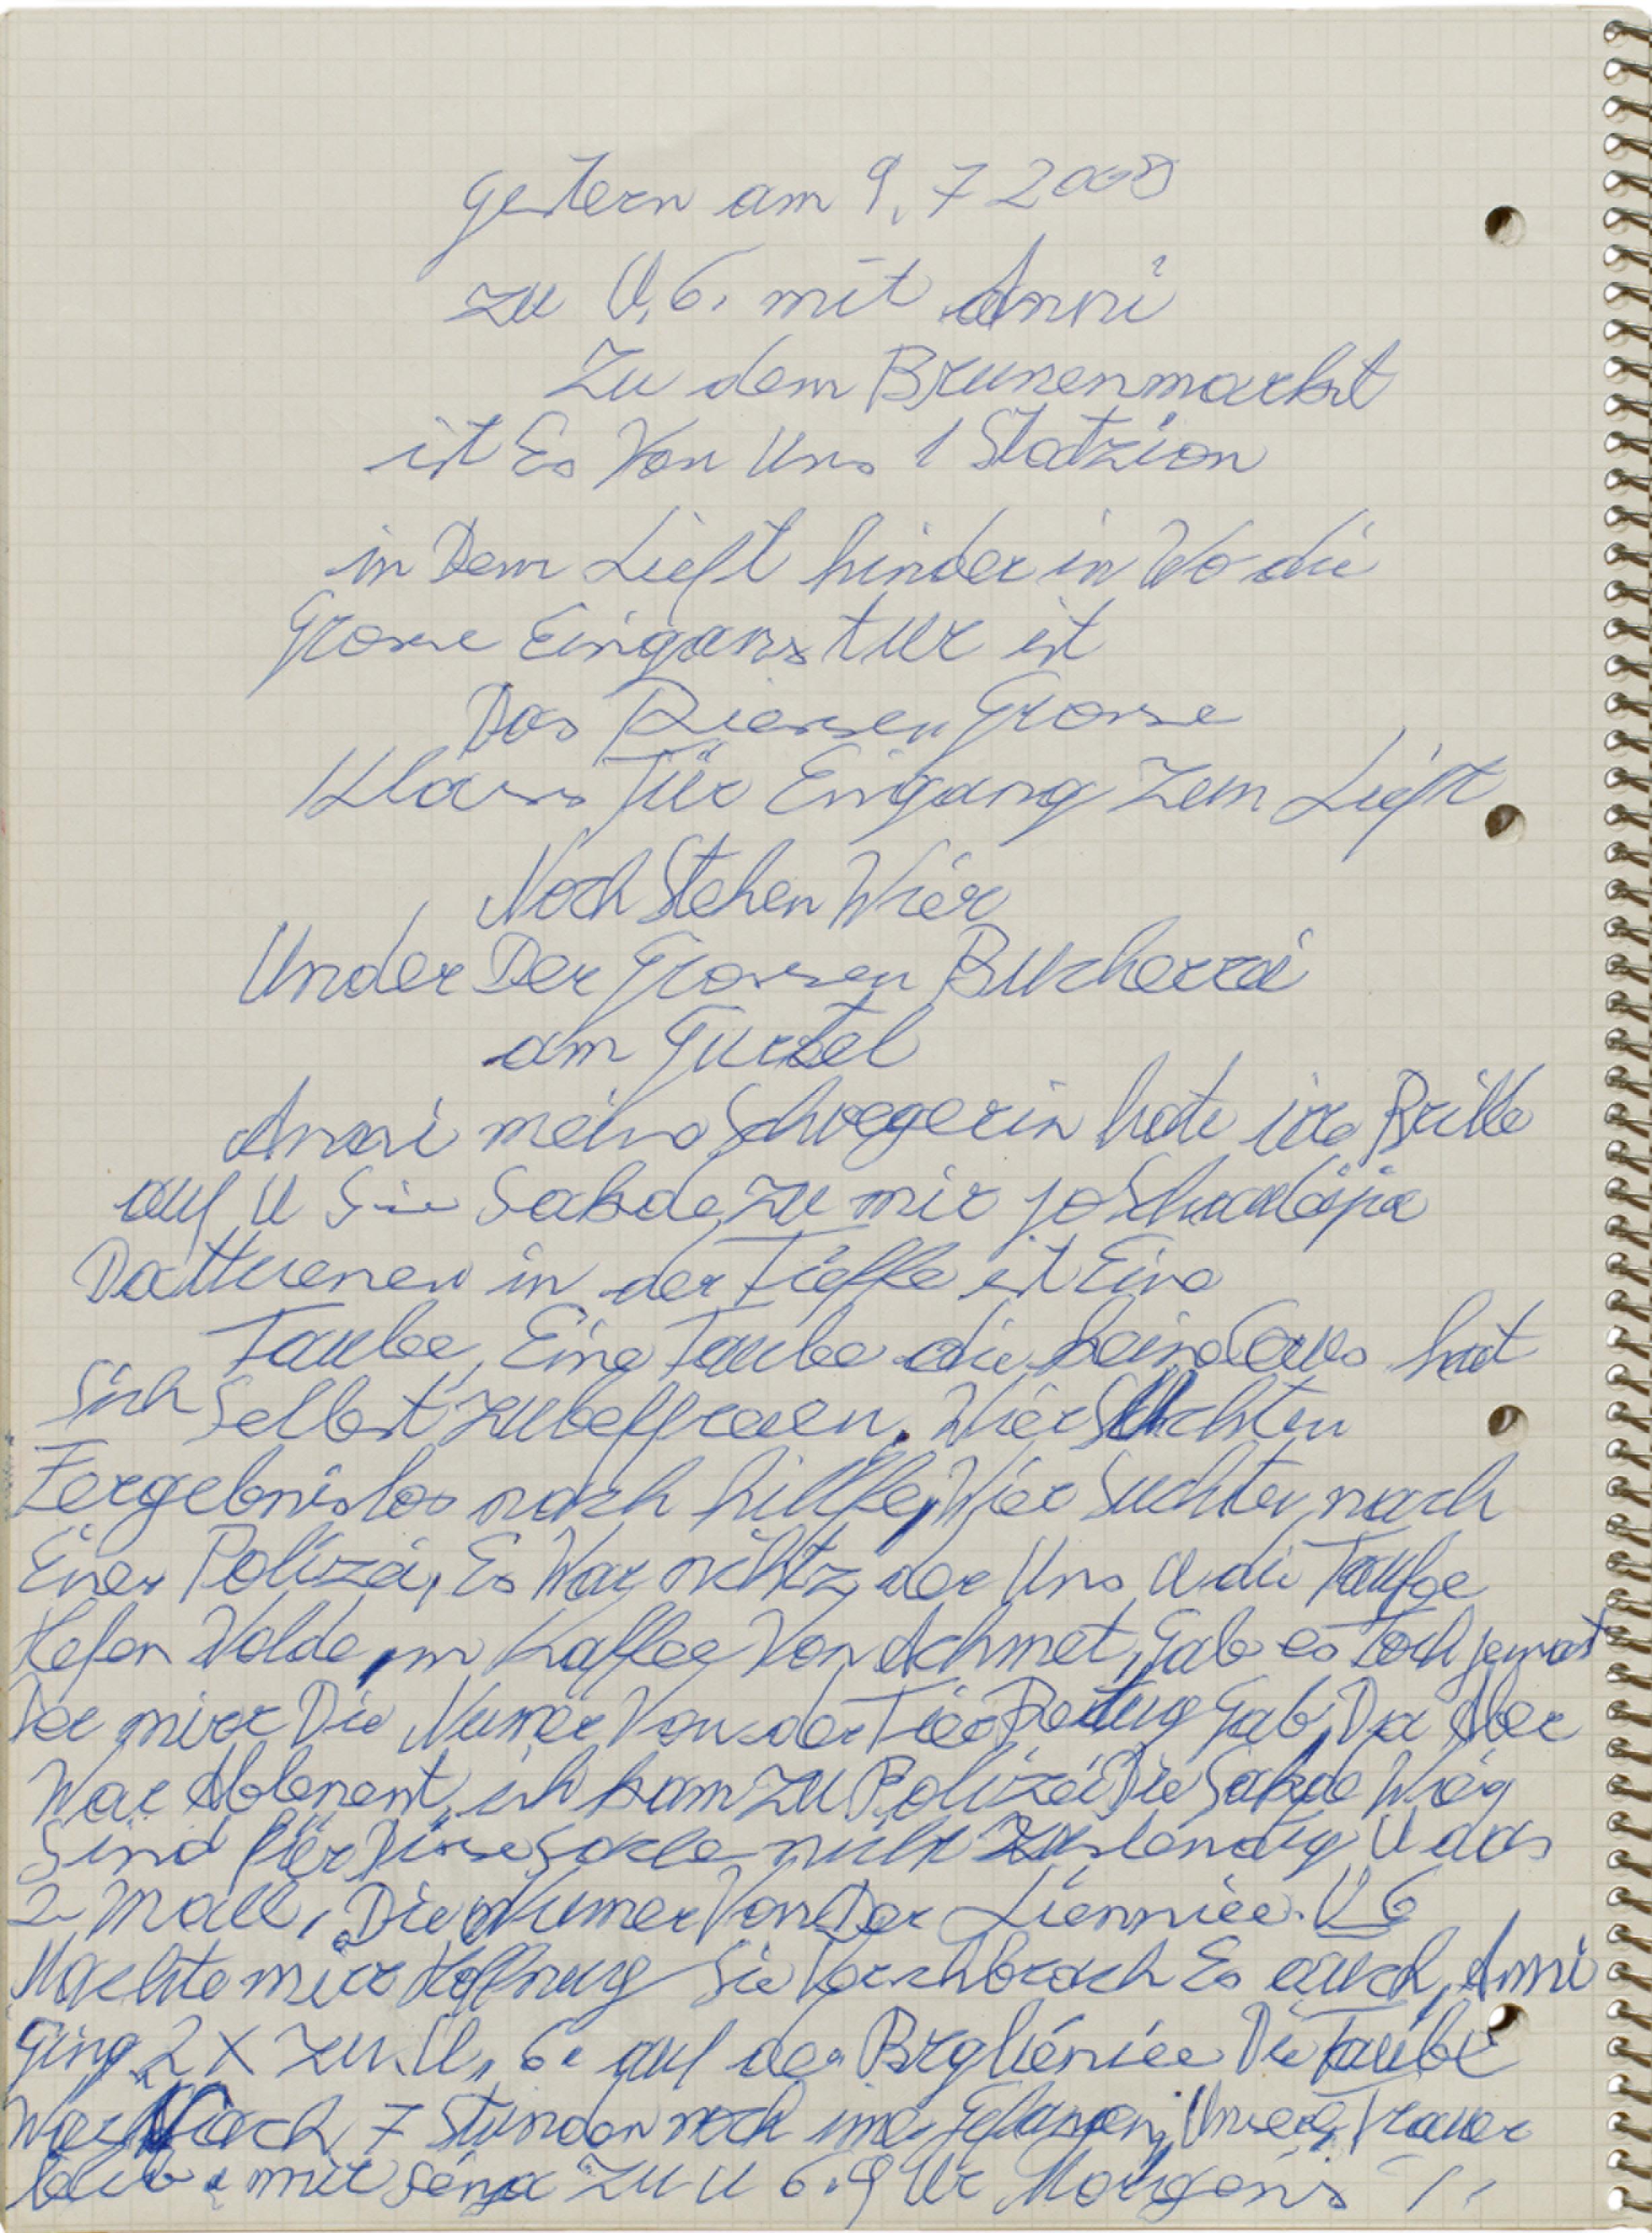 gestern am 9. 7 2008
zu U. 6. mit Anni
Zu dem Brunenmarkt
ist Es Von Uns 1 Statzion
in Dem Lieft hinder in Wo die
Grosse Eingans tur ist
Das Riesen Grosse
Klass Tür Eingang Zem Lieft
Noch Stehen Wier
Under Der Grossen Bucherrei
am Gurtel
Anni meine Schwegerin hate ire Brille
auf U Sie Sakde zu mir jo
Dattrenen in der Tieffe ist Eine
Taube, Eine Taube die keine hat
Sich Selbst zubeffraien. Wier Suchten
Fergebnislos nach hillffe, Wier Suchten nach
Einer Polizei, Es War nichtz der Uns U die Taube
Helfen Wolde, im Kaffee Von Achmet, Gab es Toch jemant
Der mirr Die Numer Von der Tier Rettug Gab, Da Aber
War Ablenent, ich kam zu Polizei Die Sakde Wieg
Sind für Diese Sache nicht Zustendig U das
2 Mall, Die Numer Von Der Lienniee. U 6
Machte mirr Hoffnung Sie Verschbrach Es auch, Anni
Ging 2 X zu. U, 6. auf der Die Taube
War Nach 7 Stunden noch imer Gefangen, Unsere Trauer
blieb mit zu U 6. 9 Ur Morgens